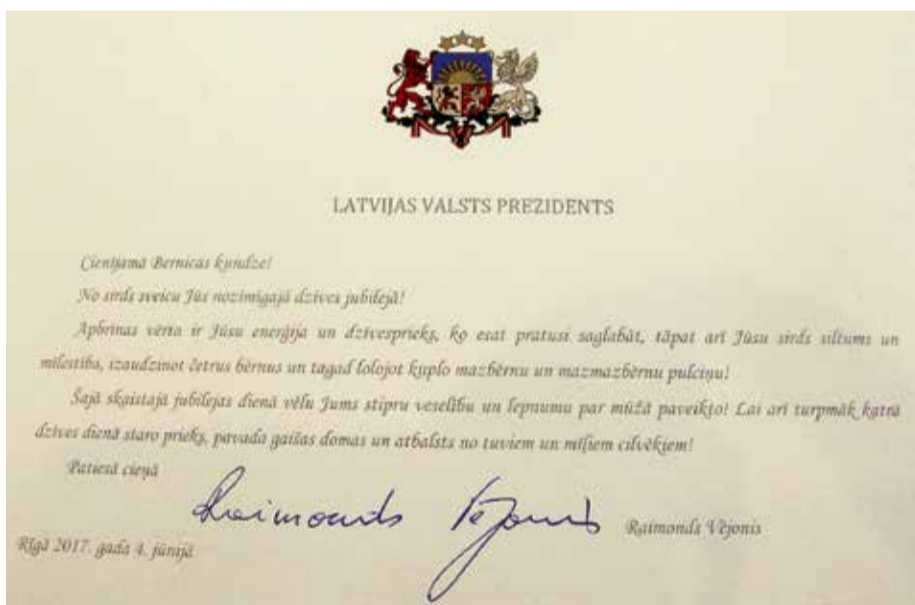 LATVIJAS VALSTS PREZIDENTS
Cienījamā Bernicas kundze!
No sirds sveicu Jūs nozīmīgajā dzīves jubilejā!
Apbrīnas vērta ir Jūsu enerģija un dzīvesprieks, ko esat pratusi saglabāt, tāpat arī Jūsu sirds siltums un
mīlestība, izaudzinot četrus bērnus un tagad lolojot kuplo mazbērnu un mazmazbērnu pulciņu!
Šajā skaistajā jubilejas dienā vēlu Jums stipru veselību un lepnumu par mūžā paveikto! Lai arī turpmāk katrā
dzīves dienā staro prieks, pavada gaišas domas un atbalsts no tuviem un mīļiem cilvēkiem!
Patiesā cieņā
Raimonds Vējonis Raimonds Vējonis
Rīgā 2017. gada 4. jūnijā